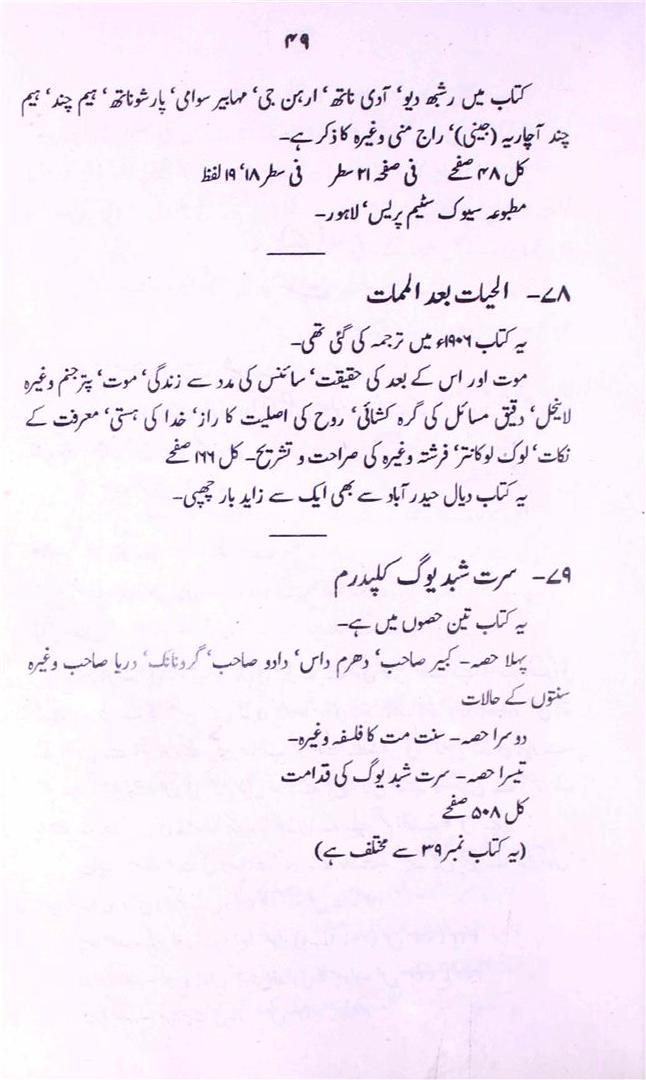 ۴۹
کتاب میں رشبھ دیو‘ آدی ناتھ‘ ارہن جی‘ مہابیر سوامی‘ پارشوناتھ‘ ہیم چند‘ ہیم
چند آچاریہ (جینی)‘ راج منی وغیرہ کا ذکر ہے۔
کل ۴۸ صفحے فی صفحہ ۲۱ سطر فی سطر ۱۸‘ ۱۹ لفظ
مطبوعہ سیوک سٹیم پریس‘ لاہور۔
۷۸۔ الحیات بعد الممات
یہ کتاب ۱۹۰۶ء میں ترجمہ کی گئی تھی۔
موت اور اس کے بعد کی حقیقت‘ سائنس کی مدد سے زندگی‘ موت‘ پترجنم وغیرہ
لاینحل‘ دقیق مسائل کی گرہ کشائی‘ روح کی اصلیت کا راز‘ خدا کی ہستی‘ معرفت کے
نکات‘ لوک لوکانتر‘ فرشتہ وغیرہ کی صراحت و تشریح۔ کل ۱۶۶ صفحے
یہ کتاب دیال حیدر آباد سے بھی ایک سے زاید بار چھپی۔
۷۹۔ سرت شبد یوگ کلپدرم
یہ کتاب تین حصوں میں ہے۔
پہلا حصہ۔ کبیر صاحب‘ دھرم داس‘ دادو صاحب‘ گرونانک‘ دریا صاحب وغیرہ
سنتوں کے حالات
دوسرا حصہ۔ سنت مت کا فلسفہ وغیرہ۔
تیسرا حصہ۔ سرت شبد یوگ کی قدامت
کل ۵۰۸ صفحے
(یہ کتاب نمبر ۳۹ سے مختلف ہے)